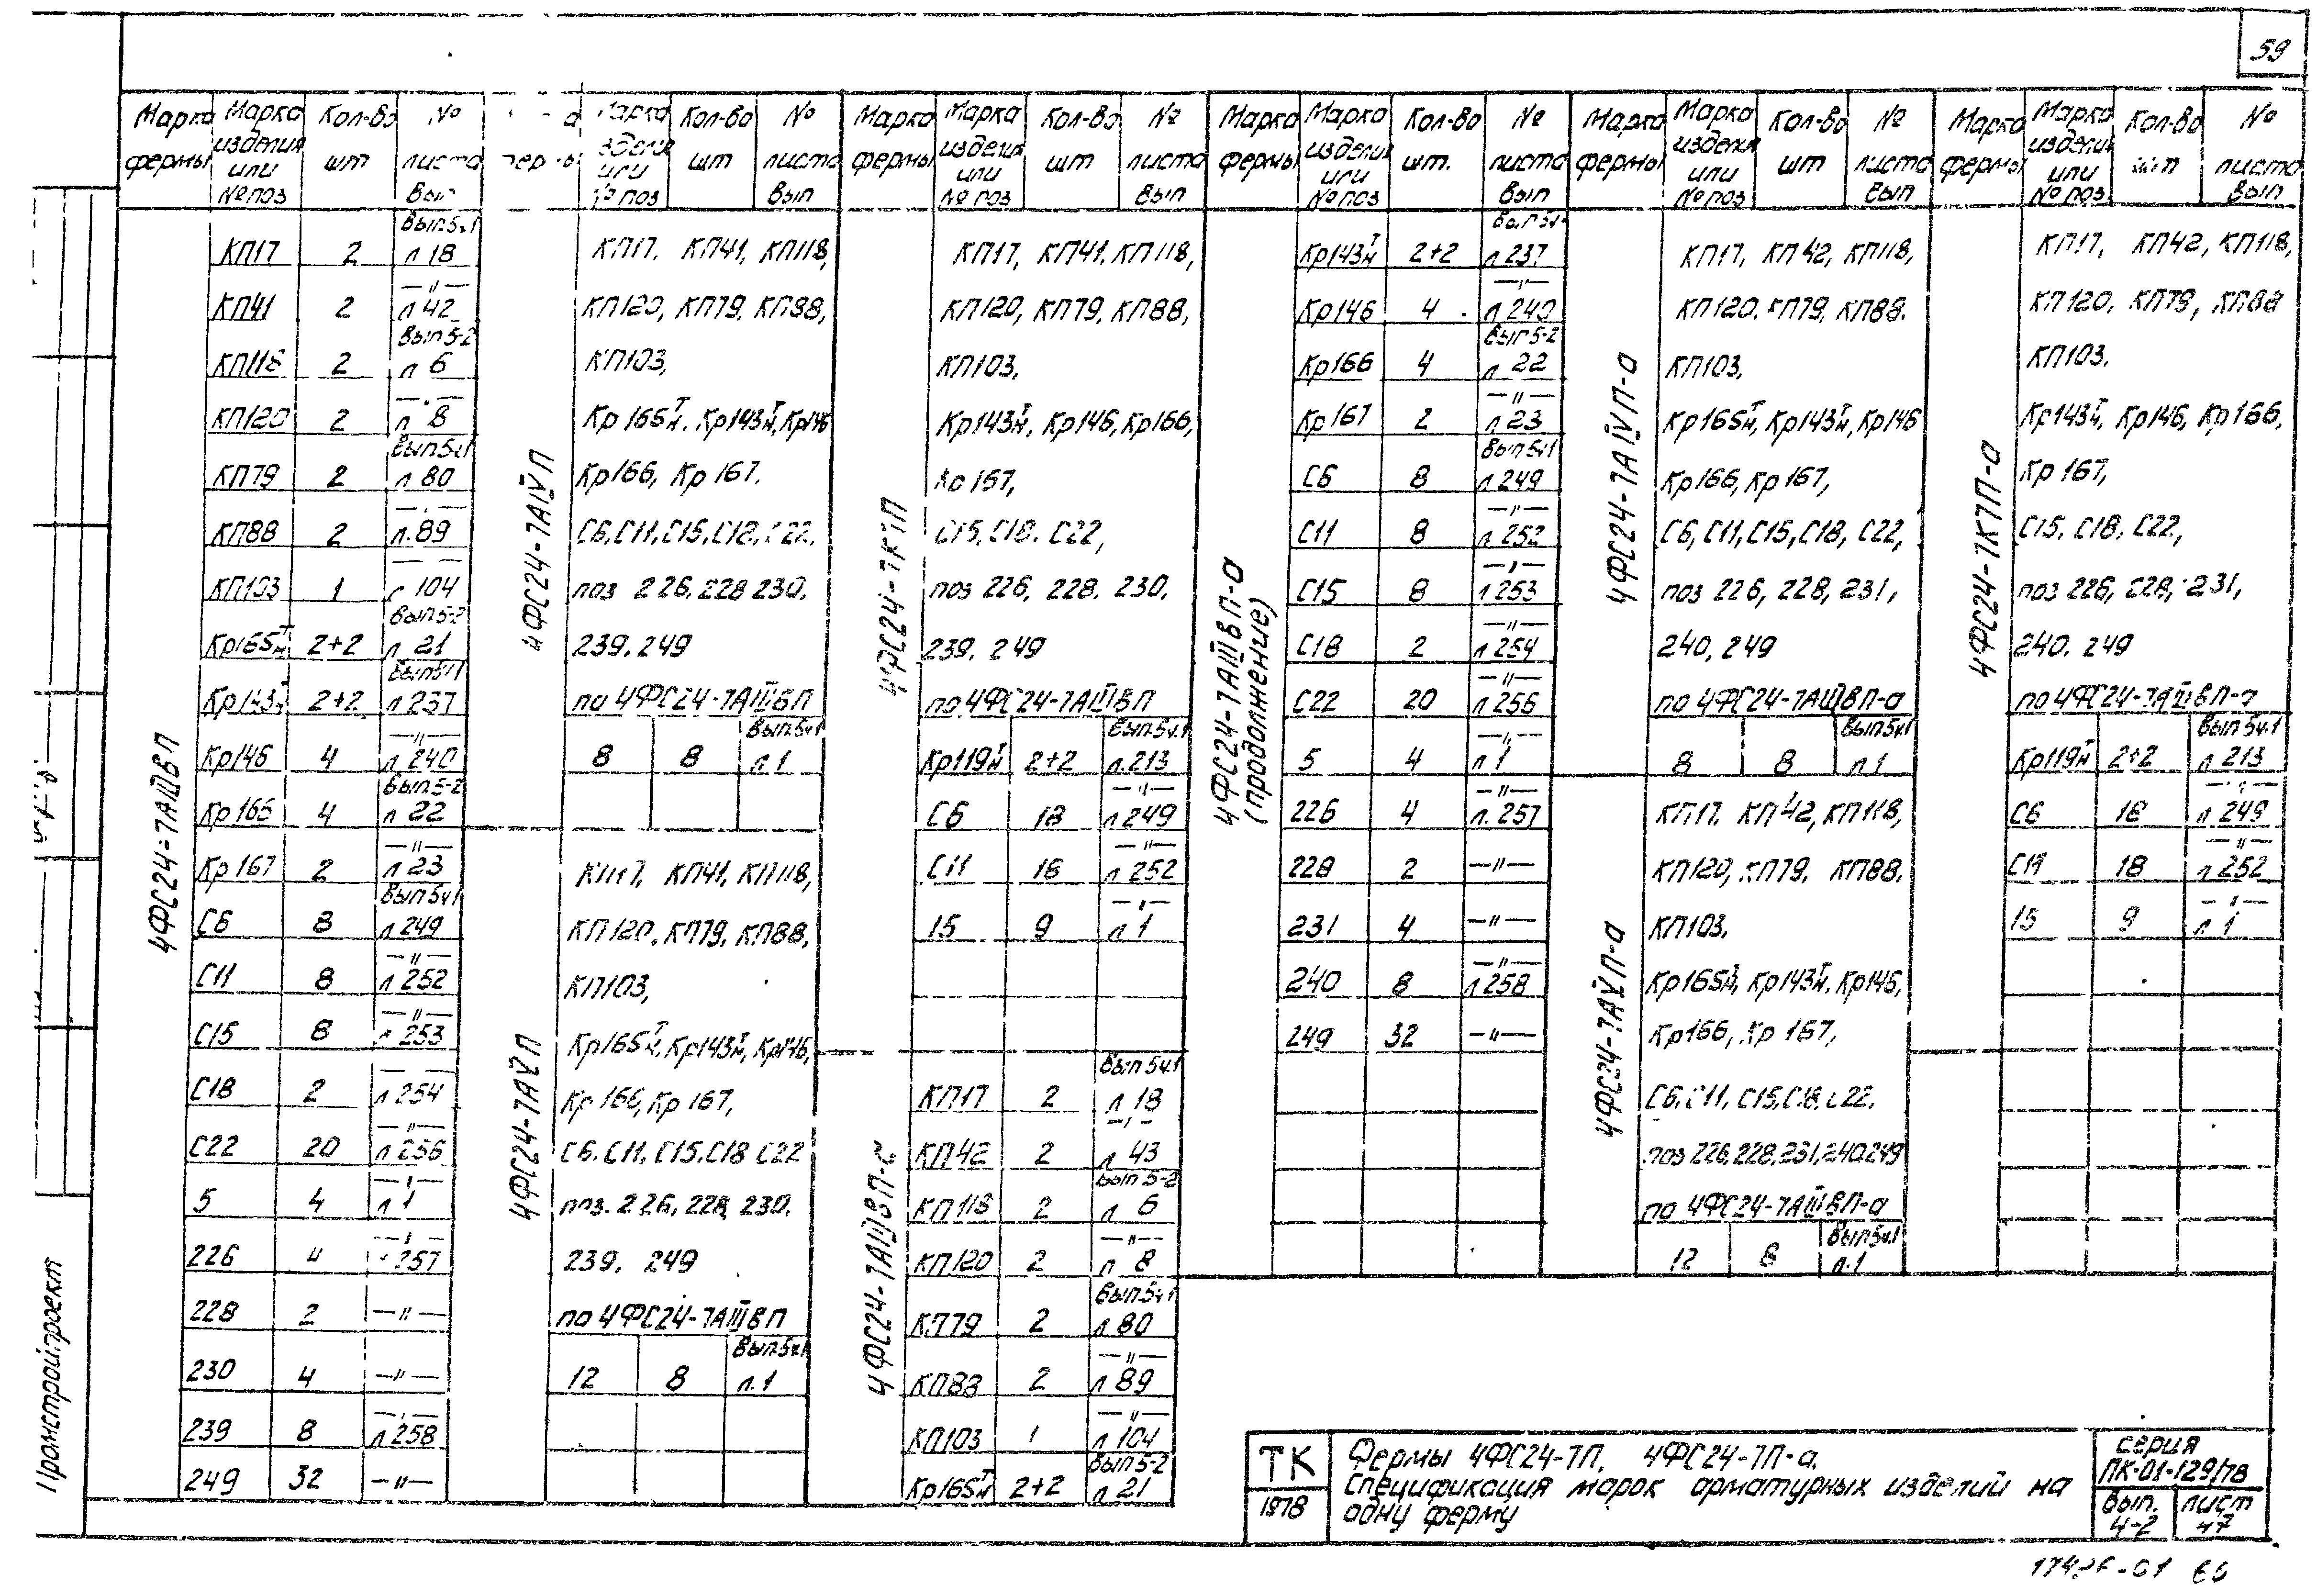 59
Марка фермы | Марка изделия или № поз | Кол-во шт | № листа Вып
4ФС24-7АIIIВП
КП17 | 2 | Вып.5ч1 л 18
КП41 | 2 | —"— л 42
КП118 | 2 | Вып 5-2 л 6
КП120 | 2 | —"— л 8
КП79 | 2 | Вып.5ч1 л 80
КП88 | 2 | —"— л. 89
КП103 | 1 | 104
Кр165тн | 2+2 | Вып 5-2 л 21
Кр143тн | 2+2 | Вып5ч1 л 237
Кр146 | 4 | —"— л 240
Кр166 | 4 | Вып.5-2 л 22
Кр167 | 2 | —"— л 23
С6 | 8 | Вып 5ч1 л 249
С11 | 8 | —"— л 252
С15 | 8 | —"— л 253
С18 | 2 | — — л 254
С22 | 20 | —"— л 256
5 | 4 | —"— л 1
226 | 4 | —"— 257
228 | 2 | —"—
230 | 4 | —"—
239 | 8 | —"— л 258
249 | 32 | —"—
Марка изделия или № поз | Кол-во шт | № листа Вып
4ФС24-7АIVП
КП17, КП41, КП118,
КП120, КП79, КП88,
КП103,
Кр165тн, Кр143тн, Кр146
Кр166, Кр 167,
С6, С11, С15, С18, С22,
поз 226, 228 230,
239, 249
по 4ФС24-7АIIIВП
8 | 8 | Вып.5ч1 л.1
4ФС24-7АVП
КП17, КП41, КП118,
КП120, КП79, КП88,
КП103,
Кр165тн, Кр143тн, Кр146,
Кр 166, Кр 167,
С6, С11, С15, С18 С22
поз. 226, 228, 230,
239, 249
по 4ФС24-7АIIIВП
12 | 8 | Вып.5ч1 л.1
Марка фермы | Марка изделия или № поз | Кол-во шт | № листа Вып
4ФС24-7К7П
КП17, КП41, КП118,
КП120, КП79, КП88,
КП103,
Кр143тн, Кр146, Кр166,
Кр 167,
С15, С18, С22,
поз 226, 228, 230,
239, 249
по 4ФС24-7АIIIВП
Кр119тн | 2+2 | Вып.5ч.1 л.213
С6 | 18 | —"— л 249
С11 | 18 | —"— л 252
15 | 9 | —"— л 1
4ФС24-7АIIIВП-а
КП17 | 2 | Вып 5ч.1 л 18
КП42 | 2 | —"— л 43
КП118 | 2 | Вып 5-2 л 6
КП120 | 2 | —"— л 8
КП79 | 2 | Вып.5ч1 л 80
КП88 | 2 | —"— л 89
КП103 | 1 | —"— л 104
Кр165тн | 2+2 | Вып 5-2 л 21
Марка фермы | Марка изделия или № поз | Кол-во шт. | № листа Вып
4ФС24-7АIIIВП-а (продолжение)
Кр143тн | 2+2 | Вып 5ч1 л 237
Кр146 | 4 | —"— л 240
Кр166 | 4 | Вып 5-2 л 22
Кр167 | 2 | —"— л 23
С6 | 8 | Вып 5ч1 л 249
С11 | 8 | —"— л 252
С15 | 8 | —"— л 253
С18 | 2 | —"— л 254
С22 | 20 | —"— л 256
5 | 4 | —"— л 1
226 | 4 | —"— л. 257
228 | 2 | —"—
231 | 4 | —"—
240 | 8 | —"— л 258
249 | 32 | —"—
Марка фермы | Марка изделия или № поз | Кол-во шт | № листа Вып
4ФС24-7АIVП-а
КП17, КП42, КП118,
КП120, КП79, КП88.
КП103,
Кр165тн, Кр143тн, Кр146
Кр166, Кр167,
С6, С11, С15, С18, С22,
поз 226, 228, 231,
240, 249
по 4ФС24-7АIIIВП-а
8 | 8 | Вып.5ч.1 л 1
4ФС24-7АVП-а
КП17, КП42, КП118,
КП120, КП79, КП88,
КП103,
Кр165тн, Кр143тн, Кр146,
Кр166, Кр 167,
С6, С11, С15, С18, С22,
поз 226, 228, 231, 240, 249
по 4ФС24-7АIIIВП-а
12 | 8 | Вып 5ч1 л.1
Марка фермы | Марка изделия или № поз | Кол-во шт | № листа Вып
4ФС24-7К7П-а
КП17, КП42, КП118,
КП120, КП79, КП88
КП103,
Кр143тн, Кр146, Кр166,
Кр 167,
С15, С18, С22,
поз 226, 228, 231,
240, 249
по 4ФС24-7АIIIВП-а
Кр119тн | 2+2 | Вып 5ч.1 л 213
С6 | 18 | —"— л 249
С11 | 18 | —"— л 252
15 | 9 | —"— л 1
Промстройпроект
ТК
1978
Фермы 4ФС24-7П, 4ФС24-7П-а.
Спецификация марок арматурных изделий на
одну ферму
серия
ПК-01-129/78
Вып. 4-2 | лист 47